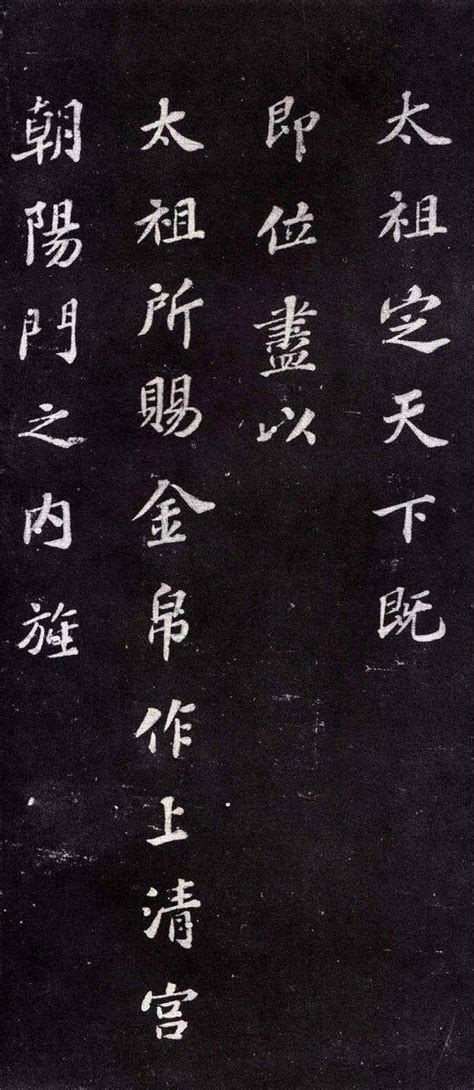 太祖定天下既
即位盡以
太祖所賜金帛作上清宮
朝陽門之內旌